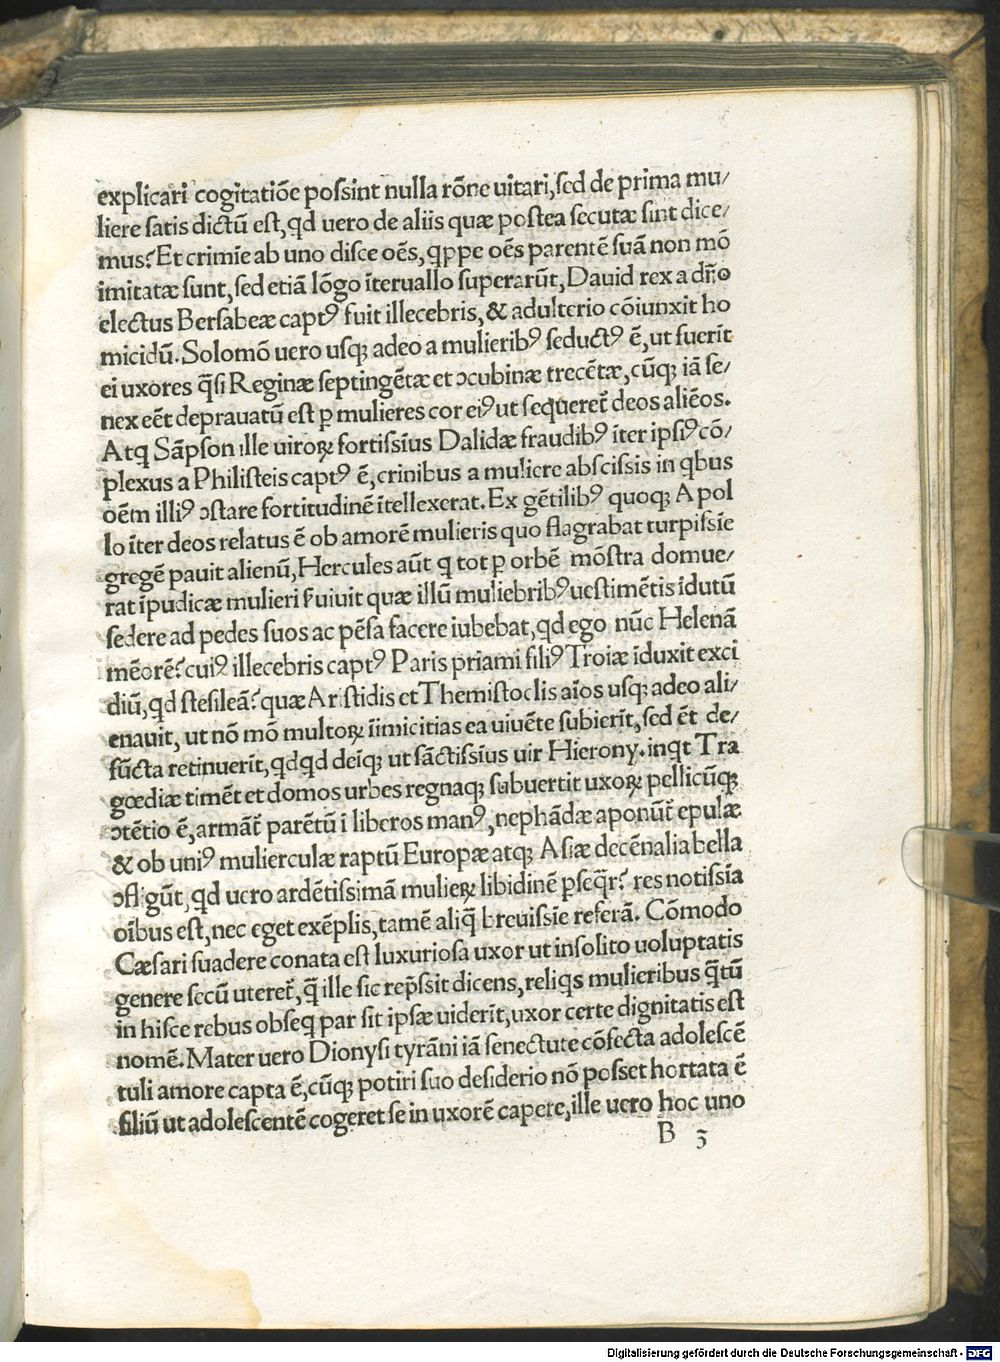 explicari cogitatiōe possint nulla rōne uitari, sed de prima mu/
liere satis dictū est, qd uero de aliis quæ postea secutæ sint dice/
mus? Et crimīe ab uno disce oēs, qppe oēs parentē suā non mō
imitatæ sunt, sed etiā lōgo īteruallo superarūt, Dauid rex a dño
electus Bersabeæ captꝰ fuit illecebris, & adulterio cōiunxit ho
micidū. Solomō uero usqꝫ adeo a mulieribꝰ seductꝰ ē, ut fuerīt
ei uxores q̄si Reginæ septingētæ et ꝯcubinæ trecētæ, cūqꝫ iā se/
nex eēt deprauatū est ꝑ mulieres cor eiꝰ ut sequeret̄ deos aliēos.
Atq Sāpson ille uiroꝝ fortissīus Dalidæ fraudibꝰ īter ipsiꝰ cō/
plexus a Philisteis captꝰ ē, crinibus a muliere abscissis in qbus
oēm illiꝰ ꝯstare fortitudinē ītellexerat. Ex gētilibꝰ quoqꝫ Apol
lo īter deos relatus ē ob amorē mulieris quo flagrabat turpissīe
gregē pauit alienū, Hercules aūt q tot ꝑ orbē mōstra domue/
rat īpudicæ mulieri ſ̄uiuit quæ illū muliebribꝰ uestimētis īdutū
sedere ad pedes suos ac pēsa facere iubebat, qd ego nūc Helenā
mēorē? cuiꝰ illecebris captꝰ Paris priami filiꝰ Troiæ īduxit exci
diū, qd stesileā? quæ Aristidis et Themistoclis aīos usqꝫ adeo ali/
enauit, ut nō mō multoꝝ īimicitias ea uiuēte subierīt, sed ēt de/
fūcta retinuerīt, qdqd deīqꝫ ut sāctissīus uir Hierony. inqt Tra
gœdiæ timēt et domos urbes regnaqꝫ subuertit uxoꝝ pellicūqꝫ
ꝯtētio ē, armāt̄ parētū ī liberos manꝰ, nephādæ aponūt̄ epulæ
& ob uniꝰ mulierculæ raptū Europæ atqꝫ Asiæ decēnalia bella
ꝯfligūt, qd uero ardētissimā mulieꝝ libidinē ꝓseq̄r? res notissīa
oībus est, nec eget exēplis, tamē aliq̄ breuissīe referā. Cōmodo
Cæsari suadere conata est luxuriosa uxor ut insolito uoluptatis
genere secū uteret̄, q̄ ille sic rep̄ssit dicens, reliqs mulieribus q̄tū
in hisce rebus obseq par sit ipsæ uiderīt, uxor certe dignitatis est
nomē. Mater uero Dionysi tyrāni iā senectute cōfecta adolescē
tuli amore capta ē, cūqꝫ potiri suo desiderio nō posset hortata ē
filiū ut adolescentē cogeret se in uxorē capere, ille uero hoc uno
B 3
Digitalisierung gefördert durch die Deutsche Forschungsgemeinschaft - DFG